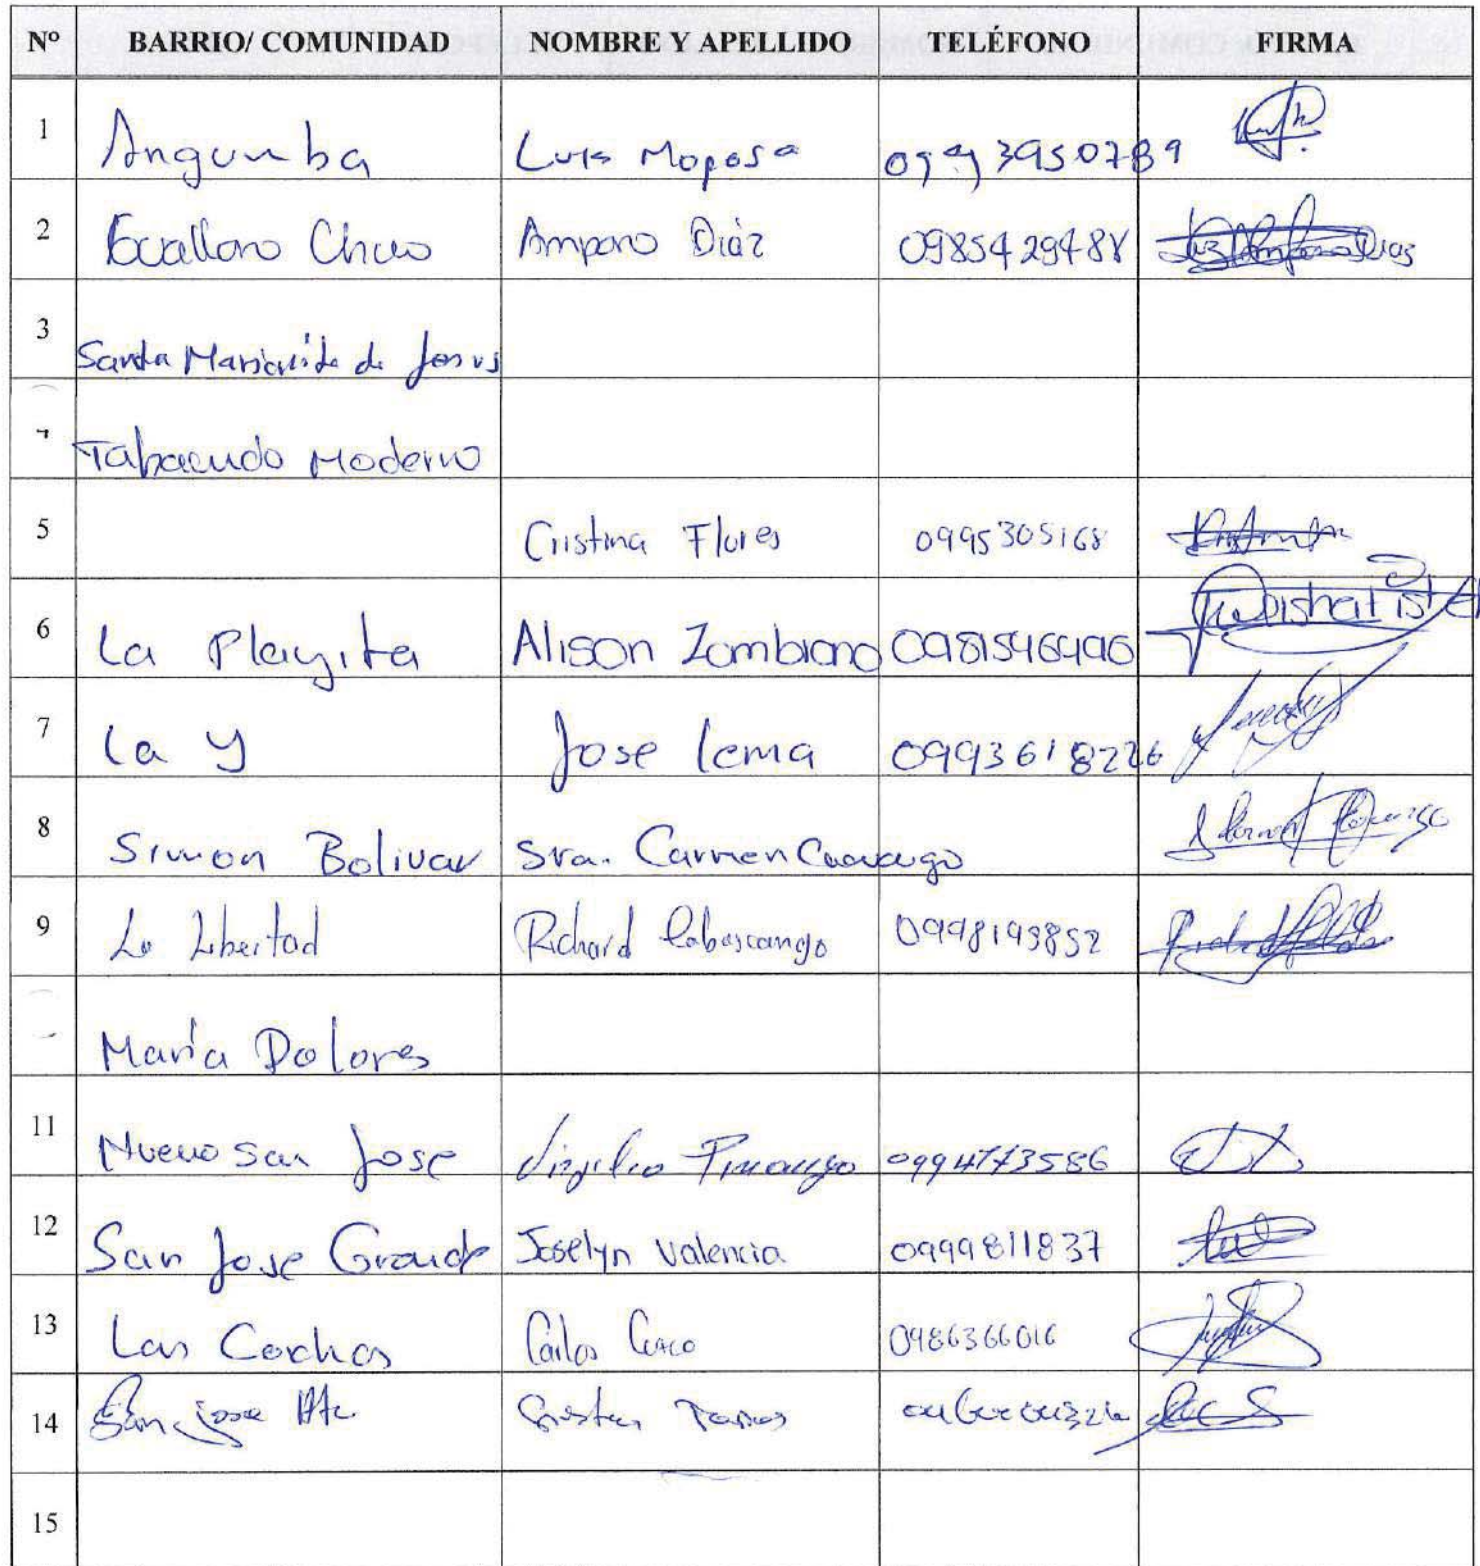 Nº BARRIO/ COMUNIDAD NOMBRE Y APELLIDO TELÉFONO FIRMA
1 Angumba Luis Moposa 0993950789
2 Amparo Diáz 0985429488
3 Santa Marianita de Jesus
Tabacundo Moderno
5 Cristina Flores 0995305168
6 La Playita Alison Zambrano 0981546496
7 La Y Jose Lema 0993618226
8 Simon Bolivar Sra. Carmen
9 La Libertad Richard Cabascango 0998193852
María Dolores
11 Nuevo San Jose Virgilio Pinango 0994773586
12 San Jose Grande Joselyn Valencia 0999811837
13 Las Cochas Carlos 0986366016
14 San jose
15